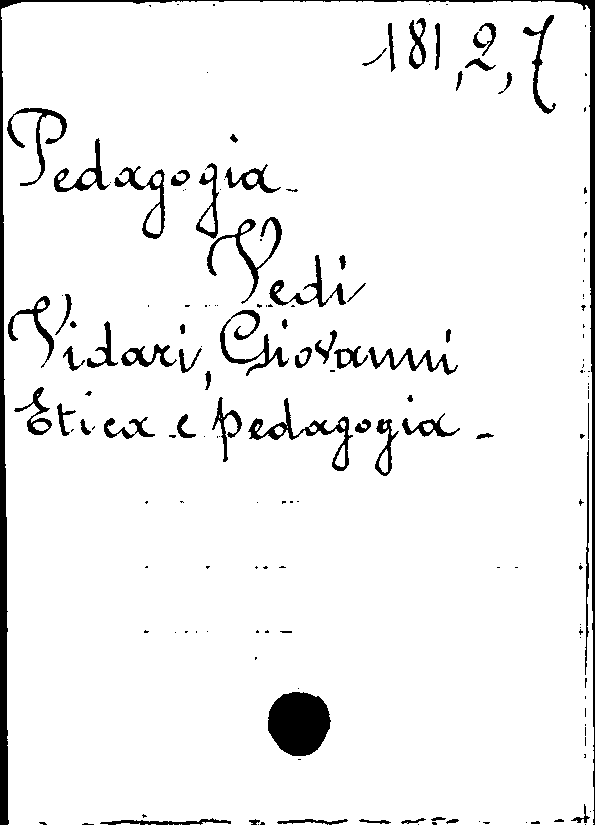 181,2,7
Pedagogia
Vedi
Vidari, Giovanni
Etica e pedagogia -